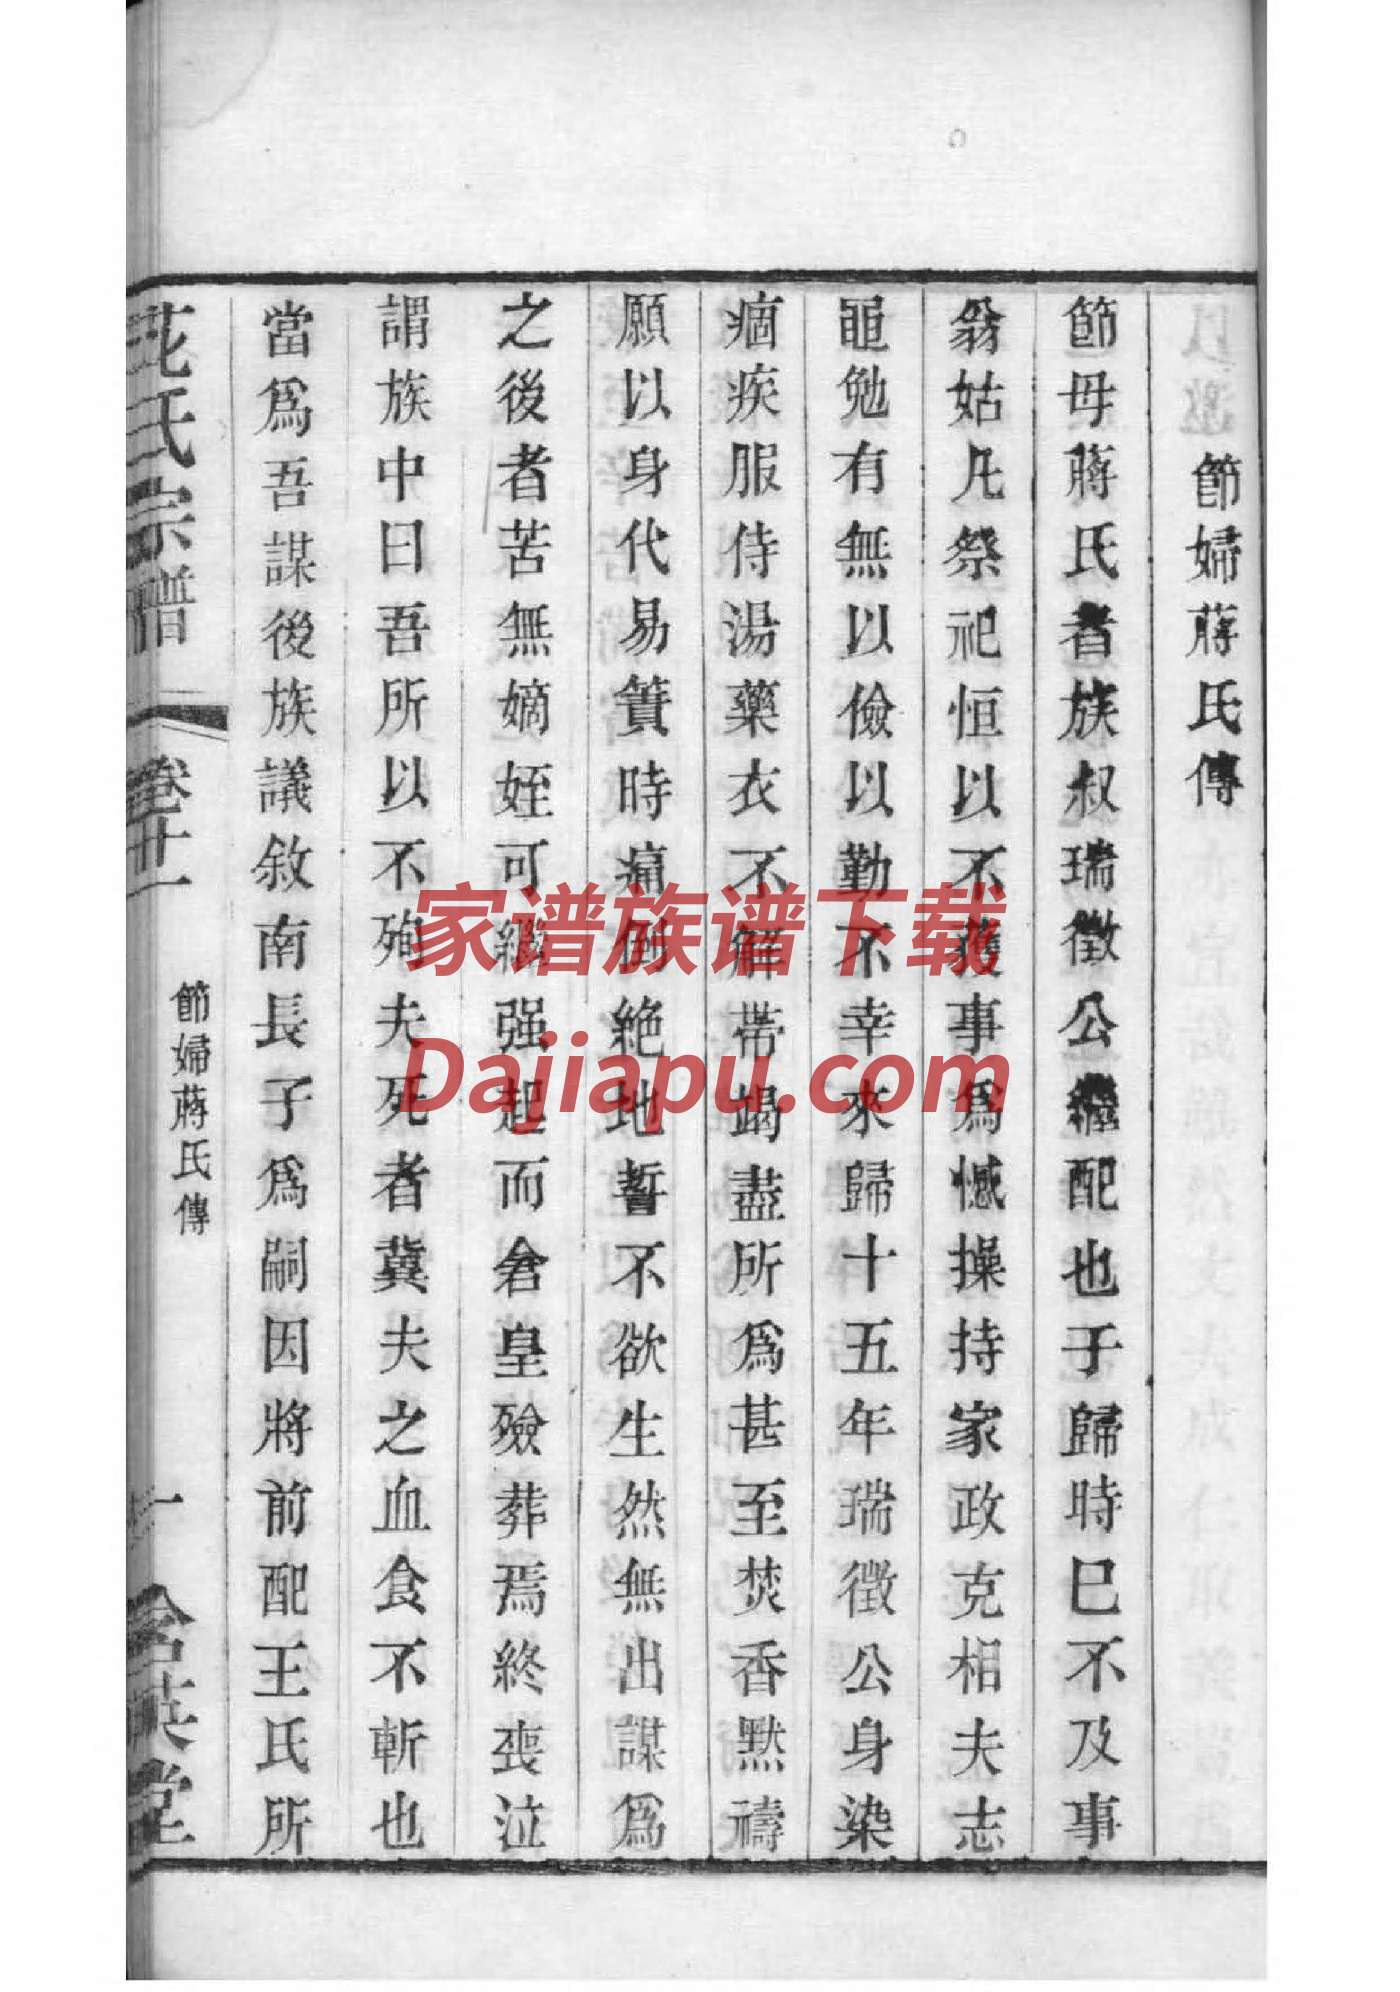 節婦蔣氏傳
節母蔣氏者族叔瑞徵公繼配也于歸時巳不及事
翁姑凡祭祀恒以不獲事爲憾操持家政克相夫志
黽勉有無以儉以勤不幸來歸十五年瑞徵公身染
痼疾服侍湯藥衣不解帶竭盡所爲甚至焚香默禱
願以身代易簀時痛倒絶地誓不欲生然無出謀爲
之後者苦無嫡姪可繼强起而倉皇殮葬焉終喪泣
謂族中曰吾所以不殉夫死者冀夫之血食不斬也
當爲吾謀後族議敘南長子爲嗣因將前配王氏所
花氏宗譜
卷十一
節婦蔣氏傳
一
含英堂
家谱族谱下载
Dajiapu.com